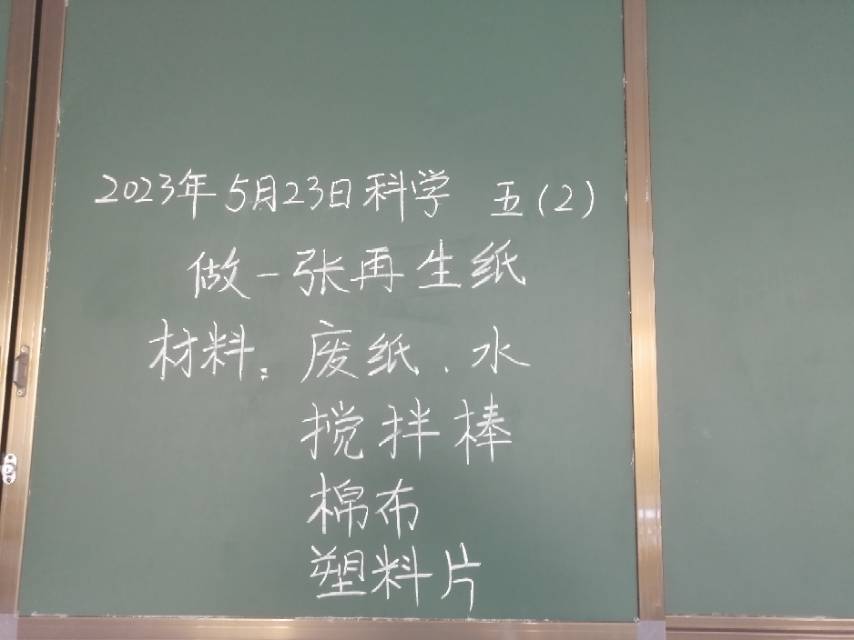 2023年5月23日科学 五(2)
做一张再生纸
材料:废纸、水
搅拌棒
棉布
塑料片